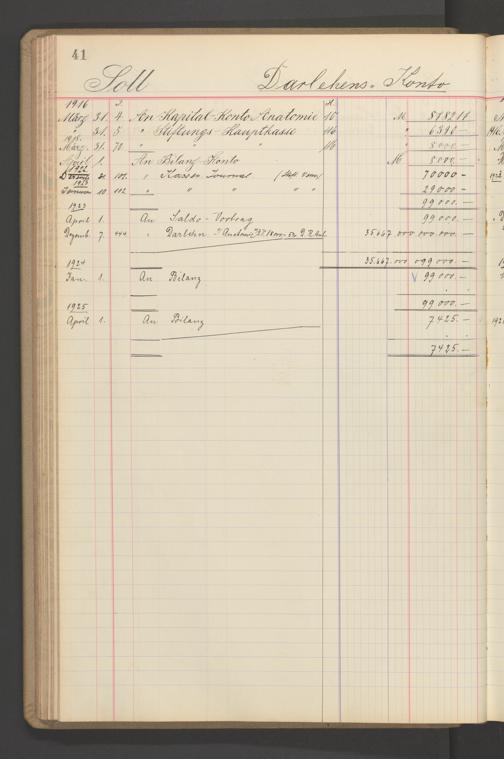 41
Soll Darlehens-Konto
1916
März 31. 4 An Kapital-Konto Anatomie 10 M 8782 11
" 31. 5 " Stiftungs-Hauptkasse 116 " 6390 -
1918.
März. 31. 70 " " " 116 " 5000 -
April 1. An Bilanz-Konto M 5000 -
1922
31 102 " Kassa Journal 70000 -
1923
Januar 10 102 " " " " " 29000 -
99000.-
1923
April 1. An Saldo-Vortrag 99000.-
Dezemb. 7. 444 " Darlehn 35.667.000.000.000.-
35.667.000.099.000.-
1924
Jan. 1. An Bilanz 99000.-
99000.-
1925
April 1. An Bilanz 7425.-
7425.-